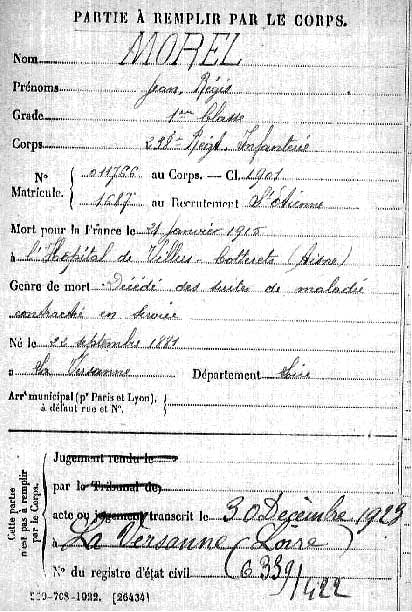 PARTIE À REMPLIR PAR LE CORPS.
Nom MOREL
Prénoms Jean, Régis
Grade 1ère Classe
Corps 238e Regt Infanterie
N° Matricule. { 011766 au Corps. — Cl. 1901
1687 au Recrutement St Etienne
Mort pour la France le 21 Janvier 1915
à l'Hopital de Villers-Cotterets (Aisne)
Genre de mort Décédé des suites de maladie
contracté en service
Né le 22 septembre 1881
à La Versanne Département Loire
Arrt municipal (pr Paris et Lyon),
à défaut rue et N°.
Cette partie n'est pas à remplir par le Corps.
Jugement rendu le
par le Tribunal de
acte ou jugement transcrit le 30 Décembre 1923
à La Versanne (Loire)
N° du registre d'état civil 6339/422
-708-1922. [26434]